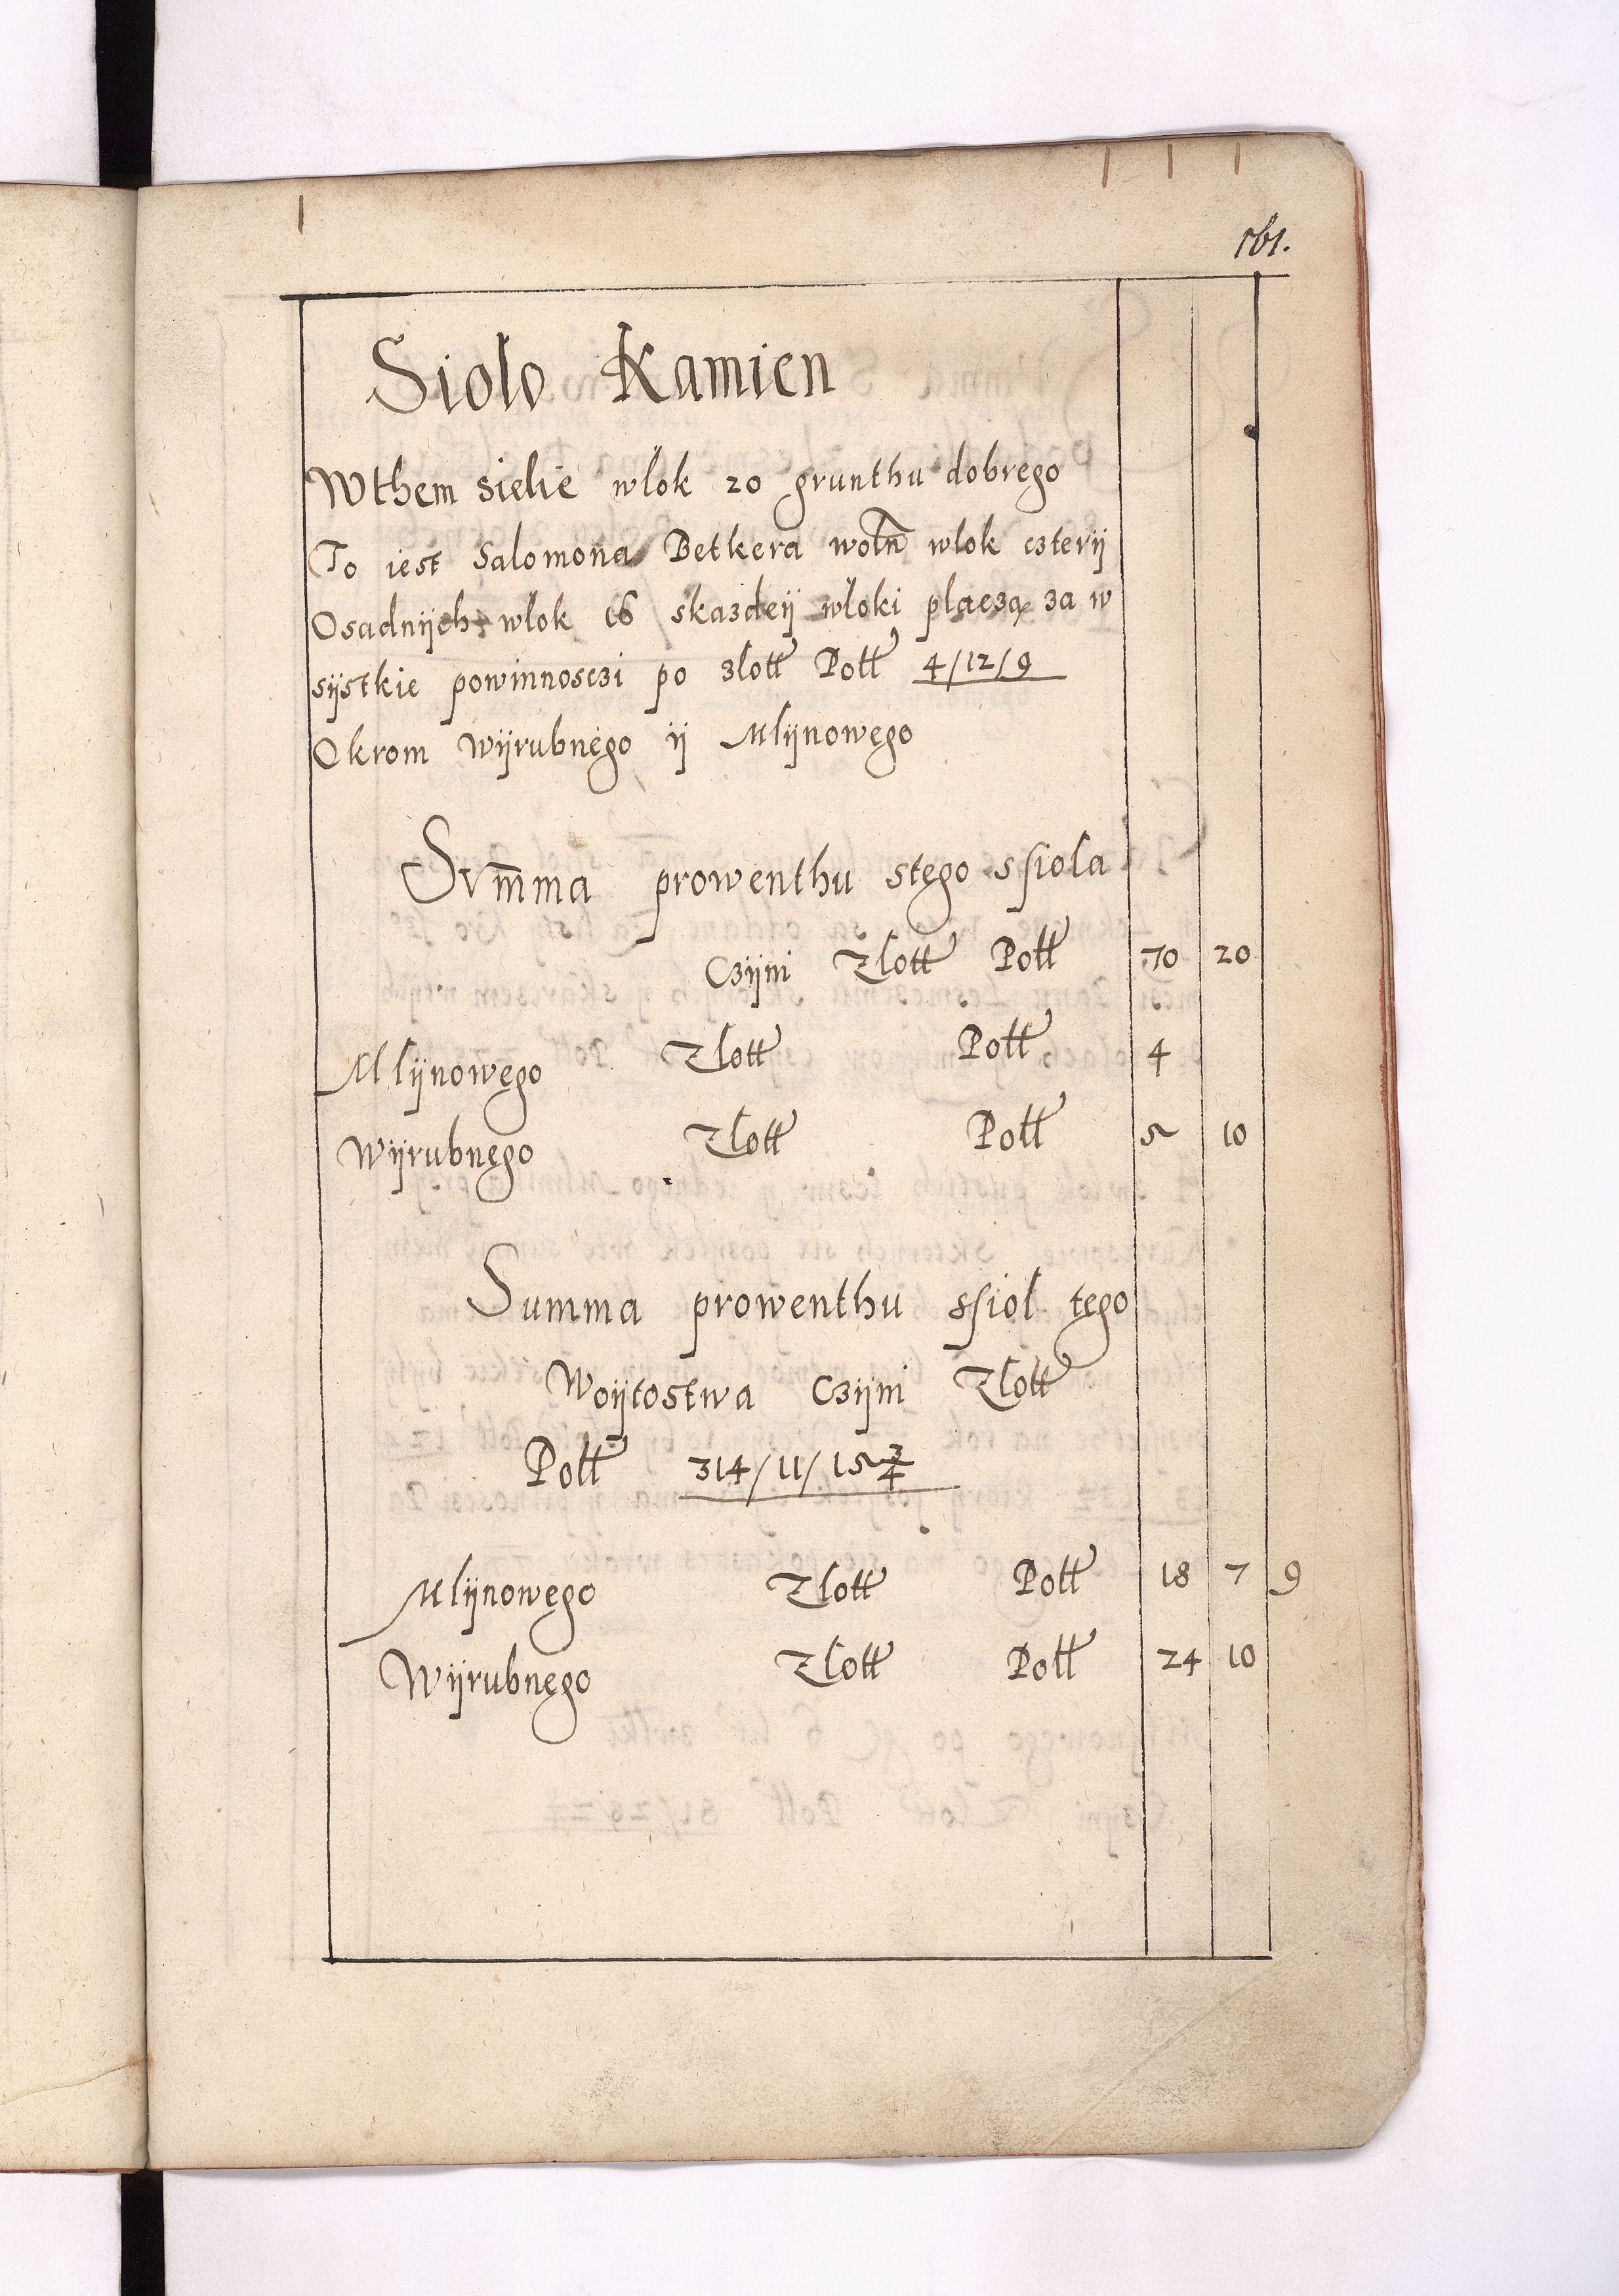 161.
Siolo Kamien
Wthem sielie wlok 20 grunthu dobrego
To iest Salomona Betkera woln̄ wlok czterÿ
Osadnÿch wlok 16 skazdeÿ wloki placzą za w
sÿstkie powinnosczi po zlott Poll 4/12/9
Okrom Wÿrubnego ÿ Mlÿnowego
Svm̄ma prowenthu stego ssiola
Czÿni Zlott Poll 70 20
Mlÿnowego Zlott Poll 4
Wÿrubnego Zlott Poll 5 10
Summa prowenthu ssiol tego
Woÿtostwa Czÿni Zlott
Poll 314/11/15 3/4
Mlÿnowego Zlott Poll 18 7 9
Wÿrubnego Zlott Poll 24 10